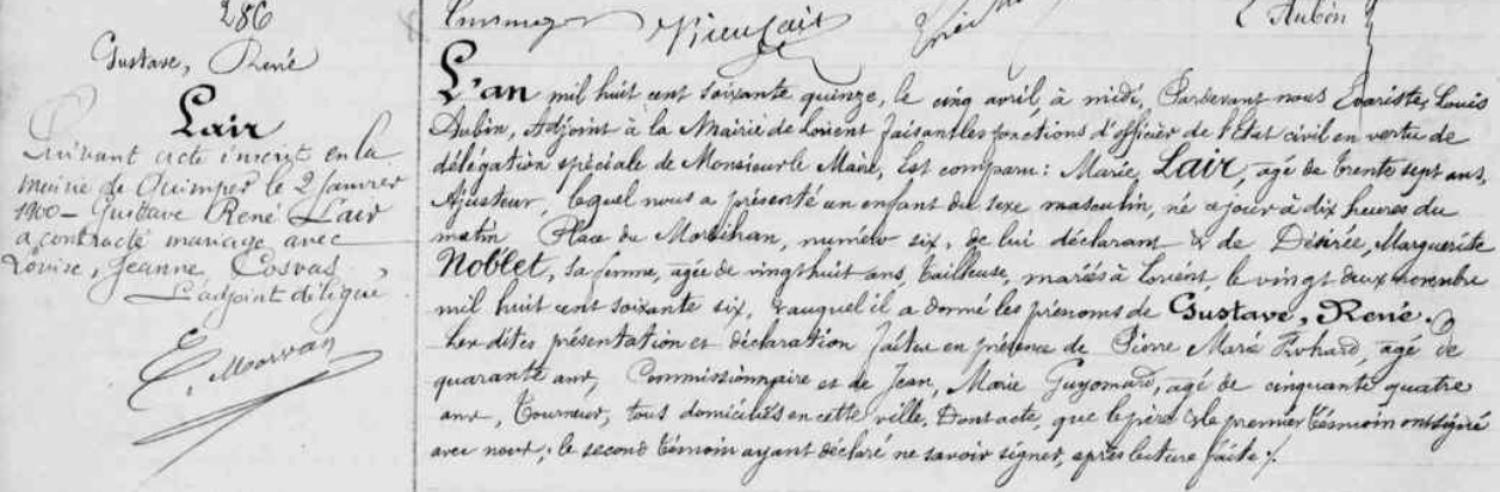 286
Gustave, René
Lair
Suivant acte inscrit en la
mairie de Quimper le 2 Janvier
1900 – Gustave René Lair
a contracté mariage avec
Louise, Jeanne Cosvas,
L'adjoint délégué
E. Morvan
Aubin
L'an mil huit cent soixante quinze, le cinq avril, à midi, Pardevant nous Evariste, Louis
Aubin, Adjoint à la Mairie de Lorient faisant les fonctions d'officier de l'Etat civil en vertu de
délégation spéciale de Monsieur le Maire, Est comparu : Marie Lair, agé de trente sept ans,
Ajusteur, lequel nous a présenté un enfant du sexe masculin, né ce jour à dix heures du
matin Place du Morbihan, numéro six, de lui déclarant & de Désirée, Marguerite
Noblet, sa femme, agée de vingt huit ans, tailleuse, mariés à Lorient, le vingt deux novembre
mil huit cent soixante six, & auquel il a donné les prénoms de Gustave, René.
Les dites présentation et déclaration faites en présence de Pierre Marie, agé de
quarante ans, Commissionnaire et de Jean, Marie Guyomard, agé de cinquante quatre
ans, Tourneur, tous domiciliés en cette ville, Dont acte, que le père & le premier témoin ont signé
avec nous, le second témoin ayant déclaré ne savoir signer, après lecture faite ./.